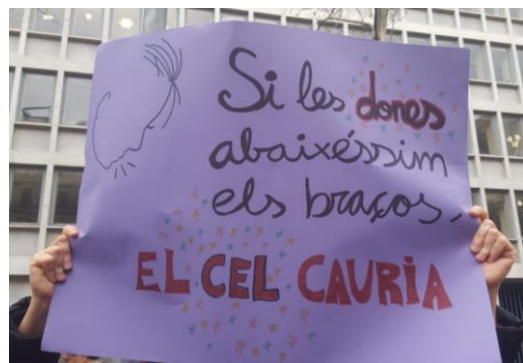 Si les dones
abaixéssim
els braços,
EL CEL CAURIA